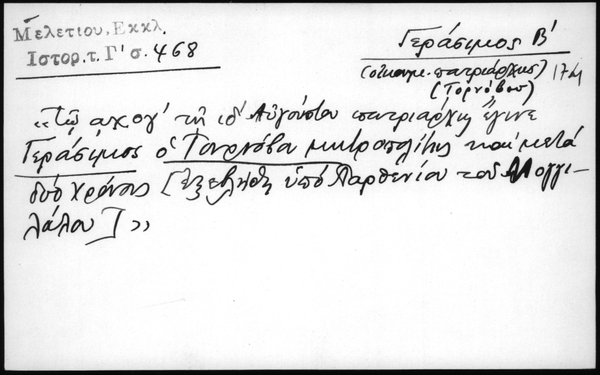 Μελετίου, Εκκλ.
Ιστορ. τ. Γ' σ. 468
Γεράσιμος Β'
(οἰκουμ. πατριάρχης)
(Τορνόβου)
«Τῷ αχογ' τῇ ιδ' Αὐγούστου πατριάρχης ἔγινε
Γεράσιμος ὁ Τουρνόβου μητροπολίτης καὶ μετὰ
δύο χρόνους [ἐξεβλήθη ὑπὸ Παρθενίου τοῦ Μογγι-
λάλου]»